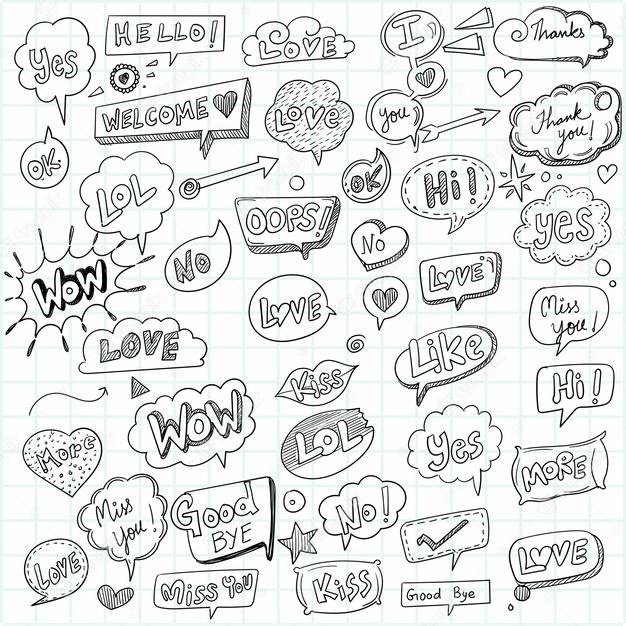 Yes
HELLO!
LOVE
I
Thanks
WELCOME
LOVE
you
Thank
you!
OK
LOL
OK
Hi!
OOPS!
NO
NO
yes
WOW
LOVE
LOVE
Miss
you!
LOVE
Like
Kiss
Hi!
WOW
More
LOL
Yes
MORE
Miss
you!
Good
BYE
No!
LOVE
LOVE
Miss you
Kiss
Good Bye